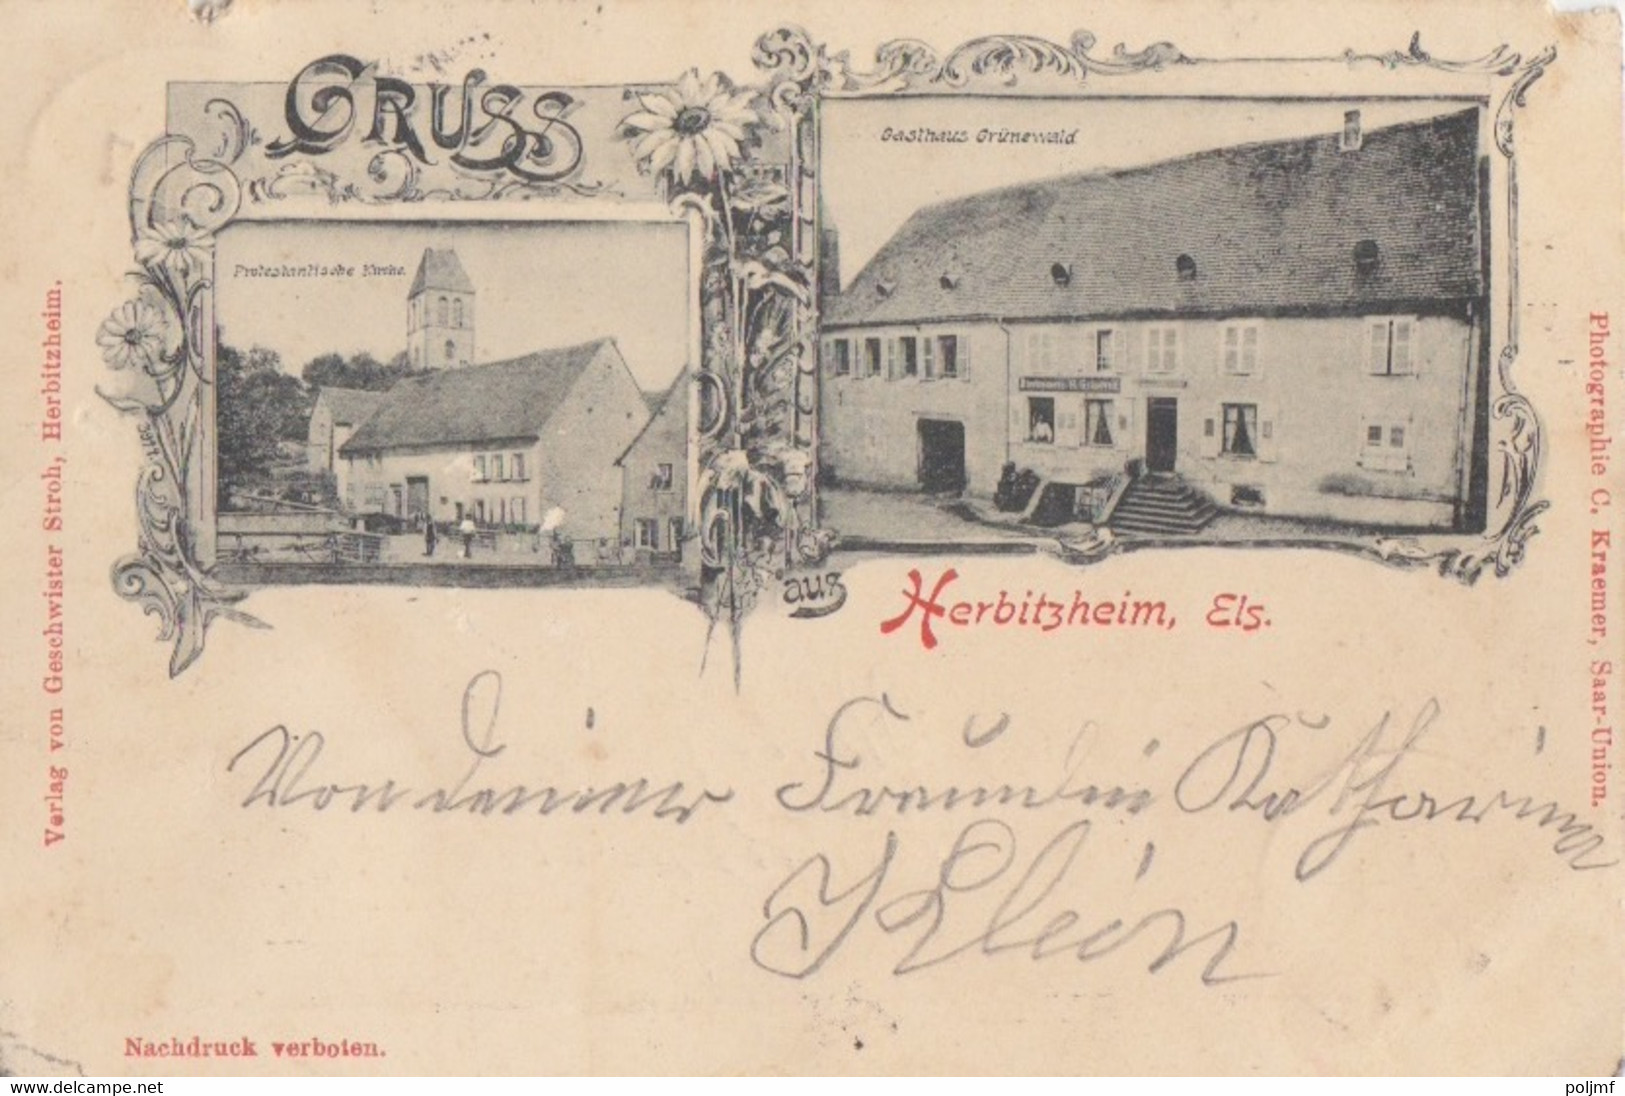 GRUSS
Protestantische Kirche.
Gasthaus Grünewald
aus
Herbitzheim, Els.
Verlag von Geschwister Stroh, Herbitzheim.
Photographie C. Kraemer, Saar-Union.
Von deiner Freundin Katharina
Klein
Nachdruck verboten.
www.delcampe.net
poljmf